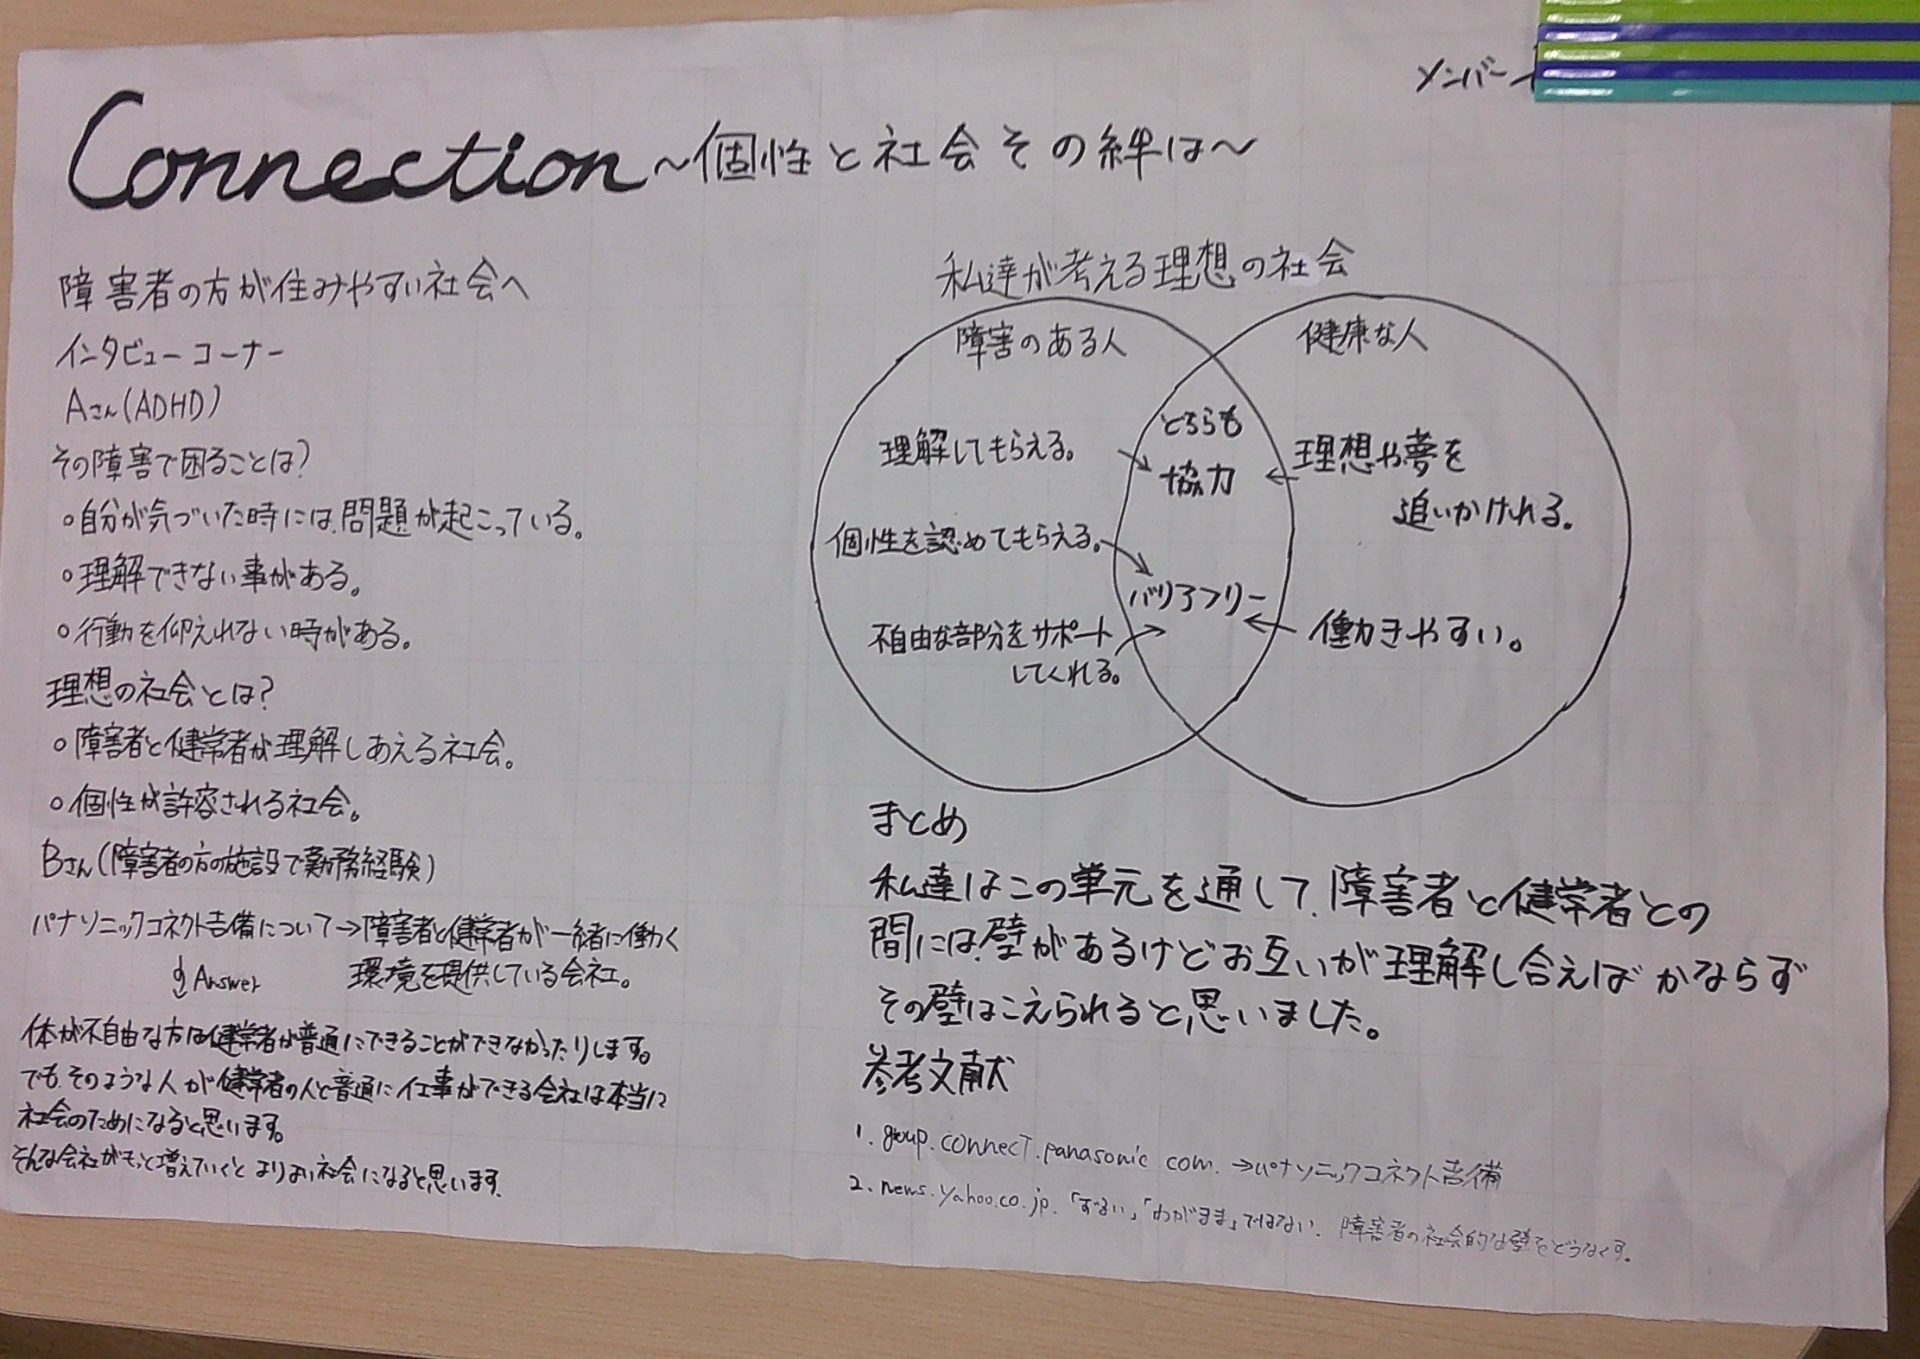 メンバー
Connection ~個性と社会その絆は~
障害者の方が住みやすい社会へ
インタビューコーナー
Aさん(ADHD)
その障害で困ることは?
○自分が気づいた時には、問題が起こっている。
○理解できない事がある。
○行動を抑えれない時がある。
理想の社会とは?
○障害者と健常者が理解しあえる社会。
○個性が許容される社会。
Bさん(障害者の方の施設で勤務経験)
パナソニックコネクト吉備について→障害者と健常者が一緒に働く
環境を提供している会社。
Answer
体が不自由な方は健常者が普通にできることができなかったりします。
でも、そのような人が健常者の人と普通に仕事ができる会社は本当に
社会のためになると思います。
そんな会社がもっと増えていくとよりよい社会になると思います。
私達が考える理想の社会
障害のある人
理解してもらえる。
個性を認めてもらえる。
不自由な部分をサポート
してくれる。
どちらも
協力
バリアフリー
健康な人
理想や夢を
追いかけれる。
働きやすい。
まとめ
私達はこの単元を通して、障害者と健常者との
間には、壁があるけどお互いが理解し合えばかならず
その壁はこえられると思いました。
参考文献
1. group.connect.panasonic com. →パナソニックコネクト吉備
2. news.yahoo.co.jp. 「ずるい」「わがまま」ではない. 障害者の社会的な壁をどうなくす。